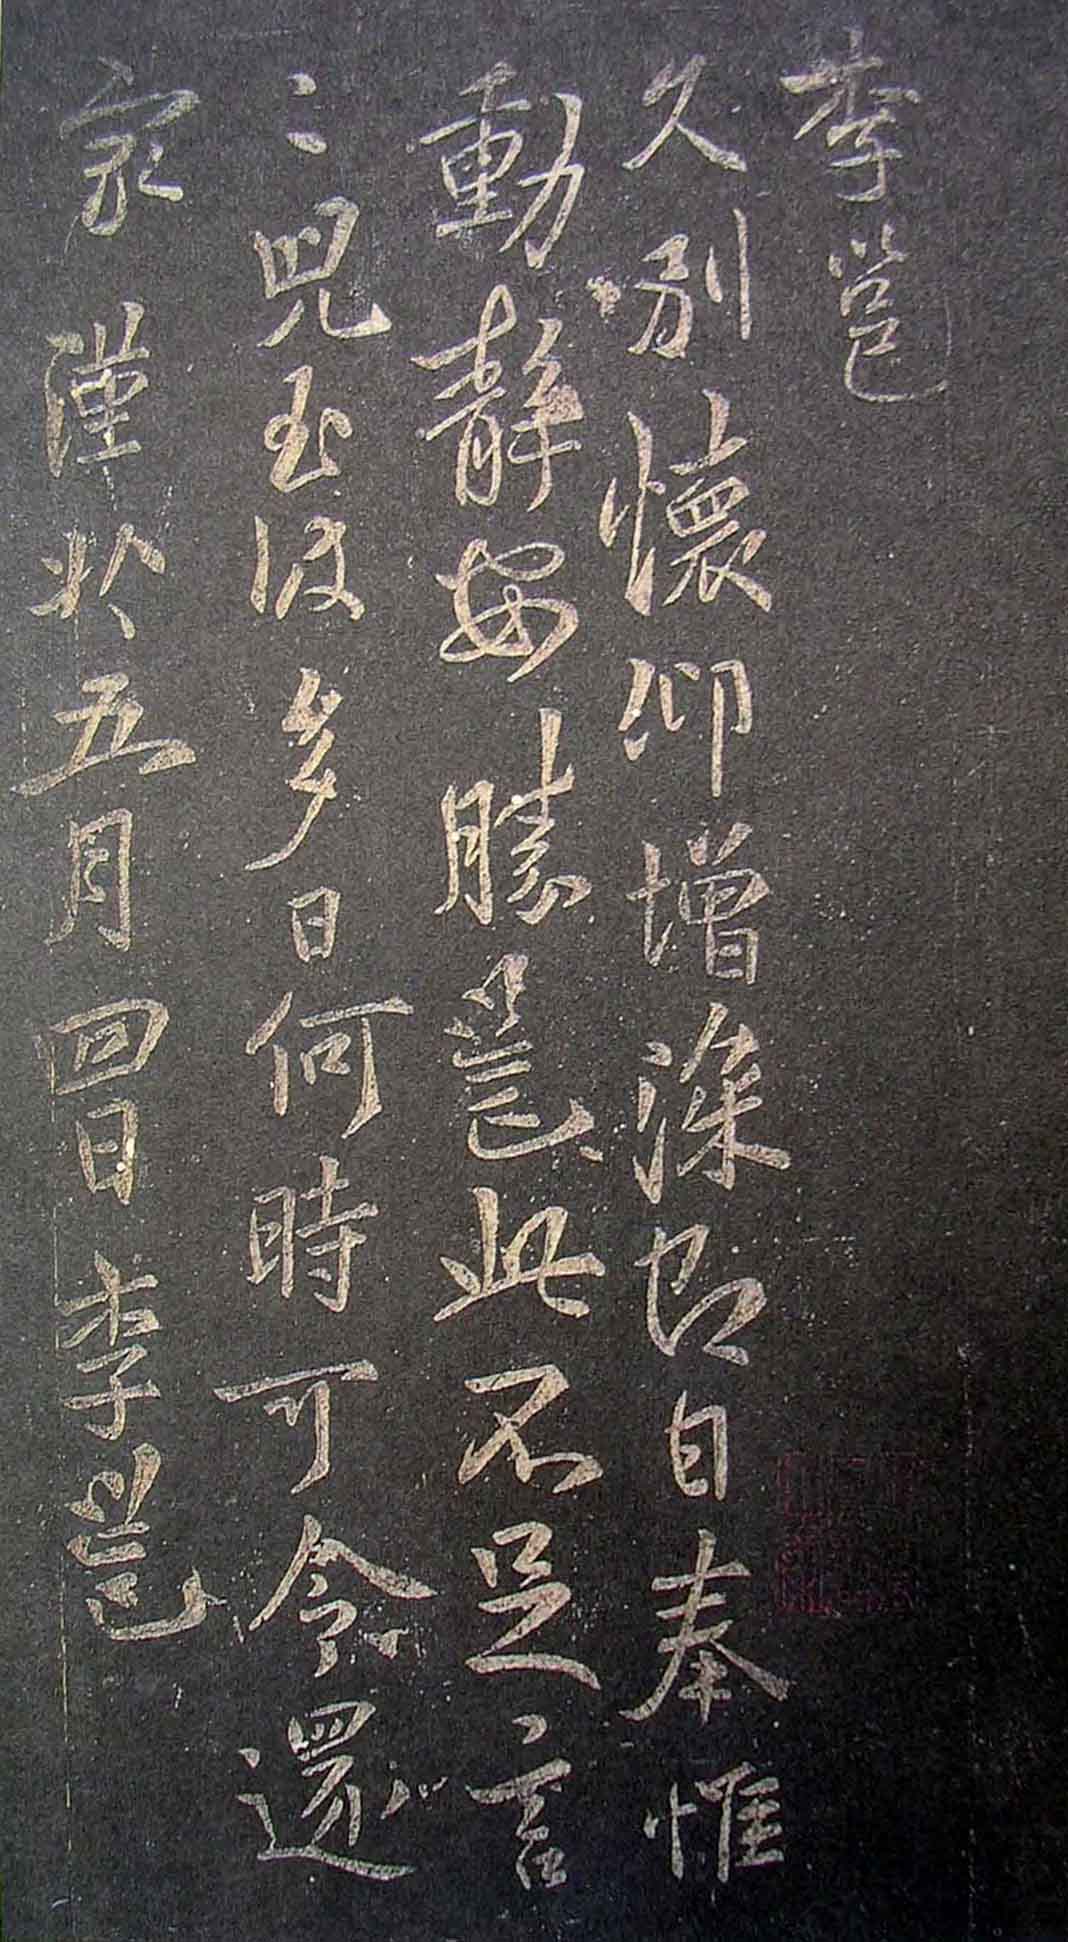 李邕
久別懷仰增深即自奉惟
動靜安勝邕此不足言
〻兒至彼多日何時可令還
家 謹狀五月四日李邕